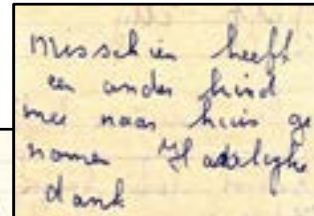 Misschien heeft
een ander kind
mee naar huis ge
nomen Hadelyke
dank